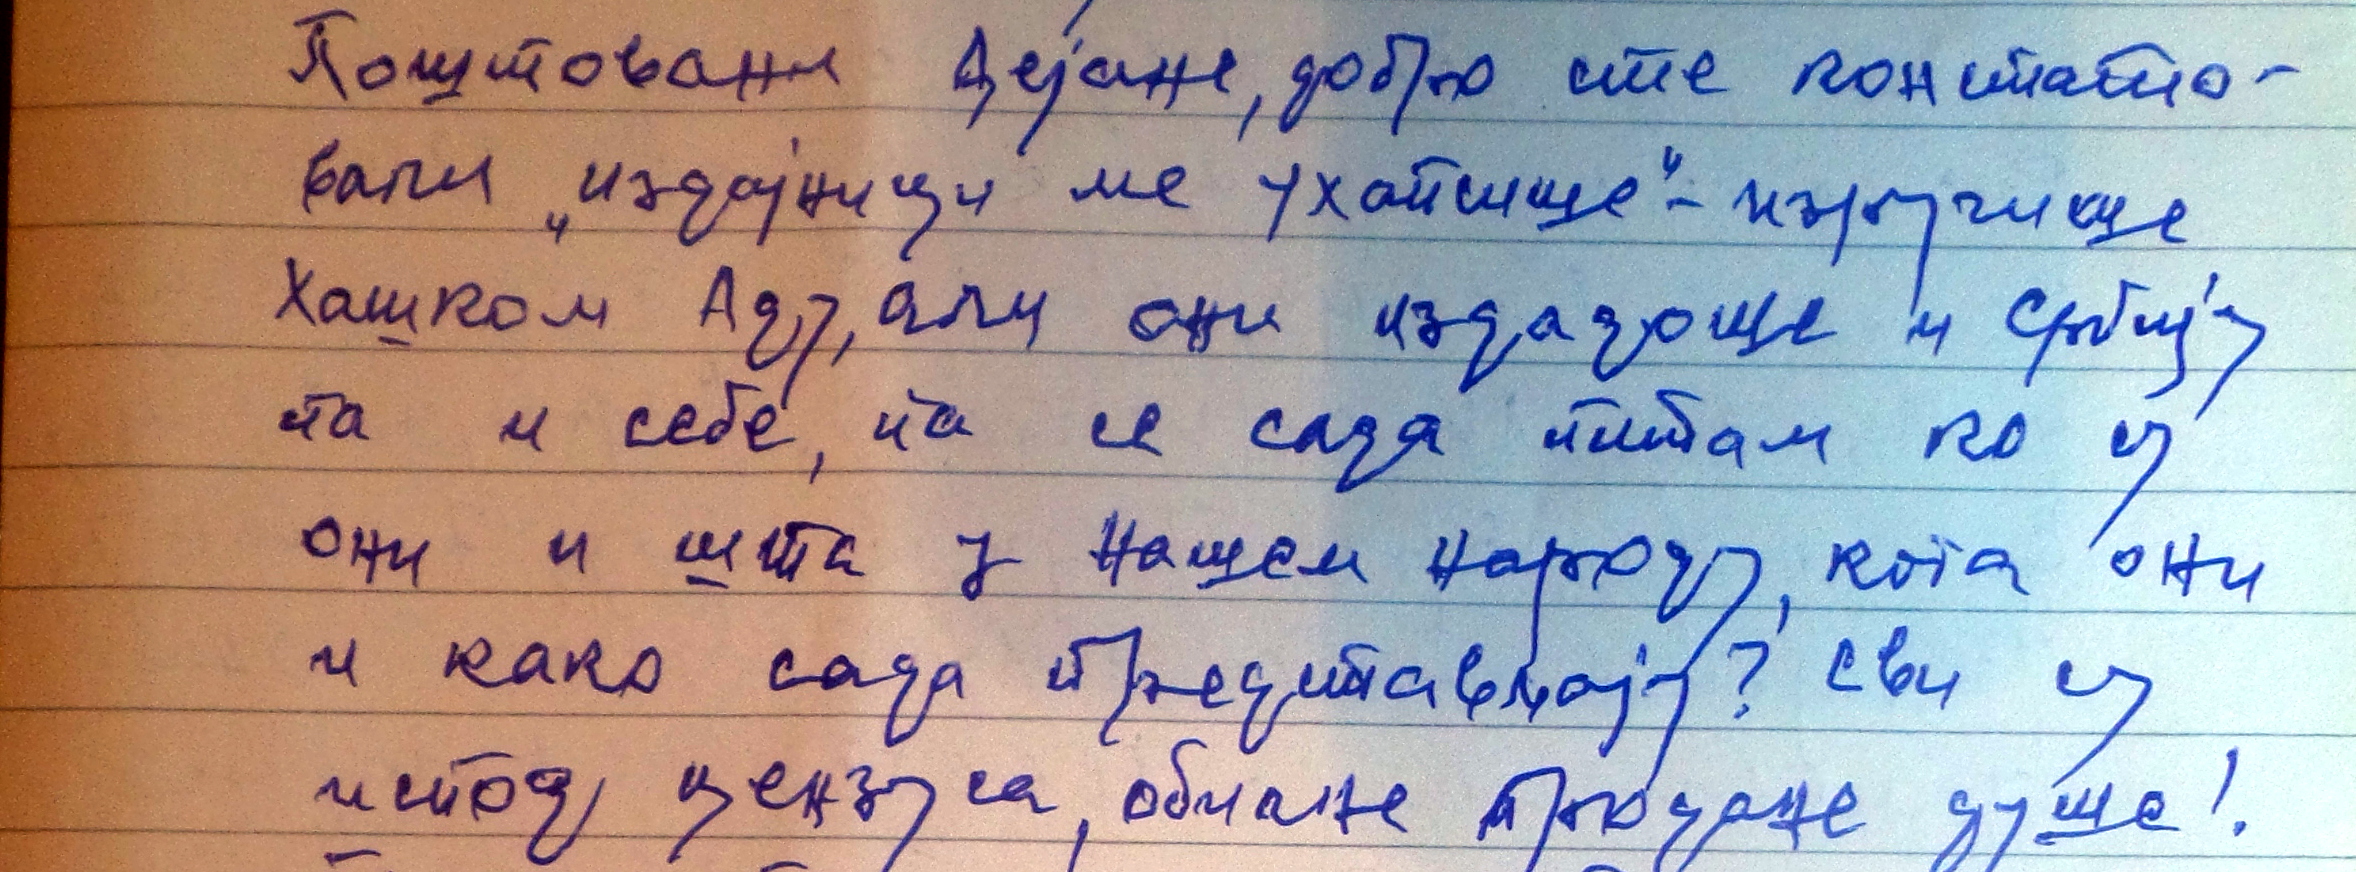 Поштовани Дејане, добро сте констато-
вали „издајници ме ухапсише“ - изручише
Хашком Аду, али они издадоше и Србију
па и себе, па се сада питам ко су
они и шта у нашем народу, кога они
и како сада представљају? Сви су
испод цензуса, обичне продане душе!.